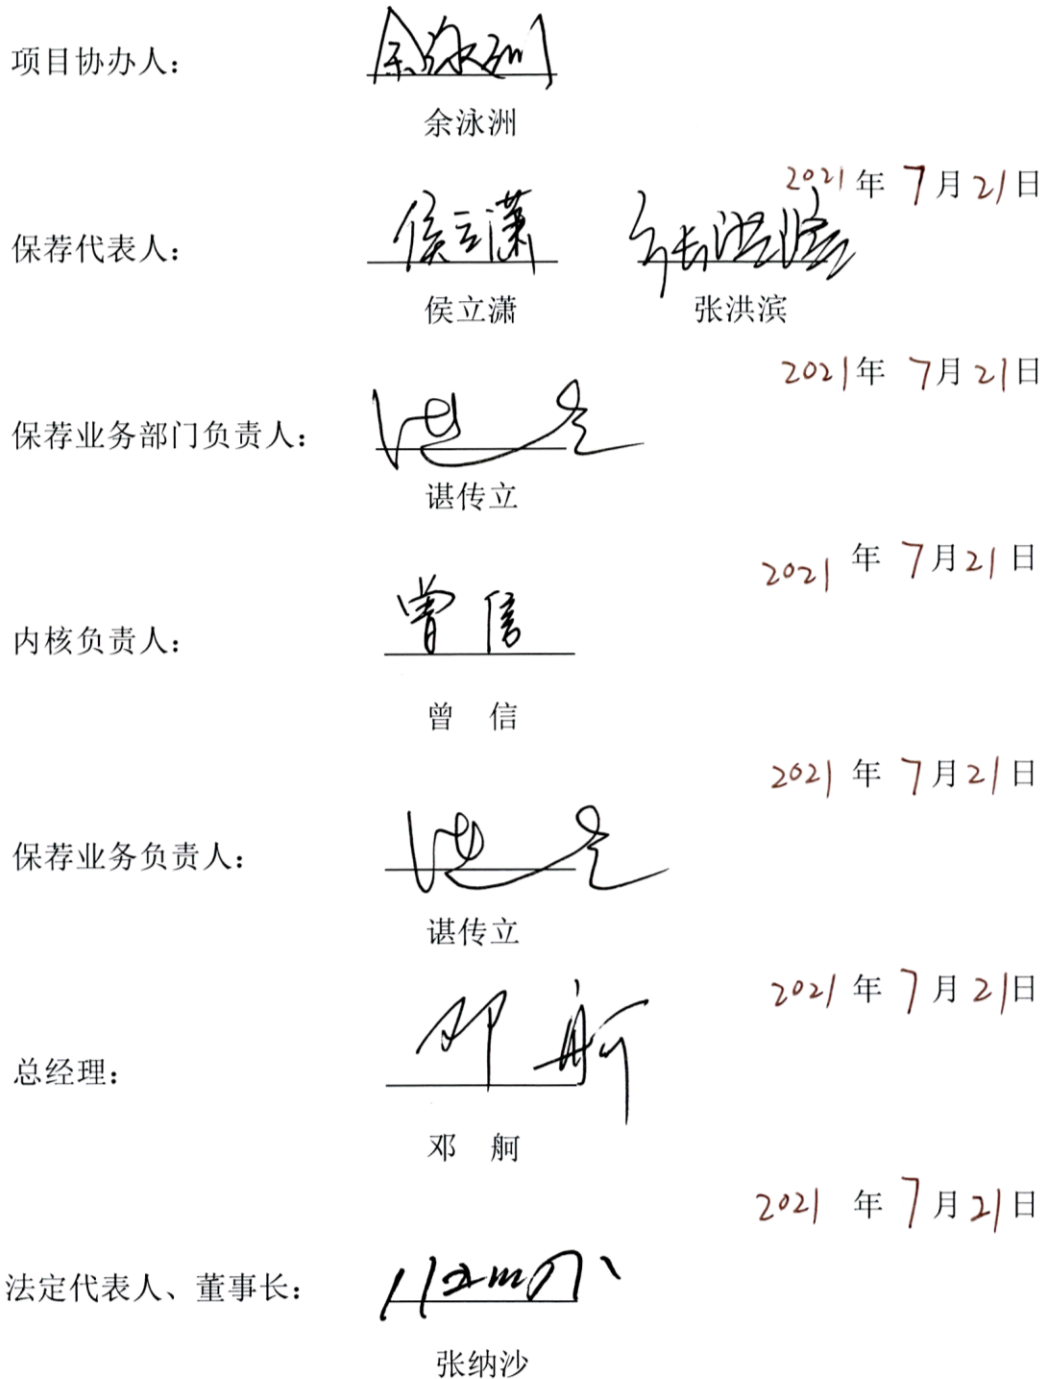 项目协办人： 余泳洲
余泳洲
2021年 7月21日
保荐代表人： 侯立潇 张洪滨
侯立潇 张洪滨
2021年 7月21日
保荐业务部门负责人：
谌传立
2021 年 7月21日
内核负责人： 曾信
曾 信
2021 年 7月21日
保荐业务负责人：
谌传立
2021 年 7月21日
总经理： 邓舸
邓 舸
2021 年 7月21日
法定代表人、董事长：
张纳沙